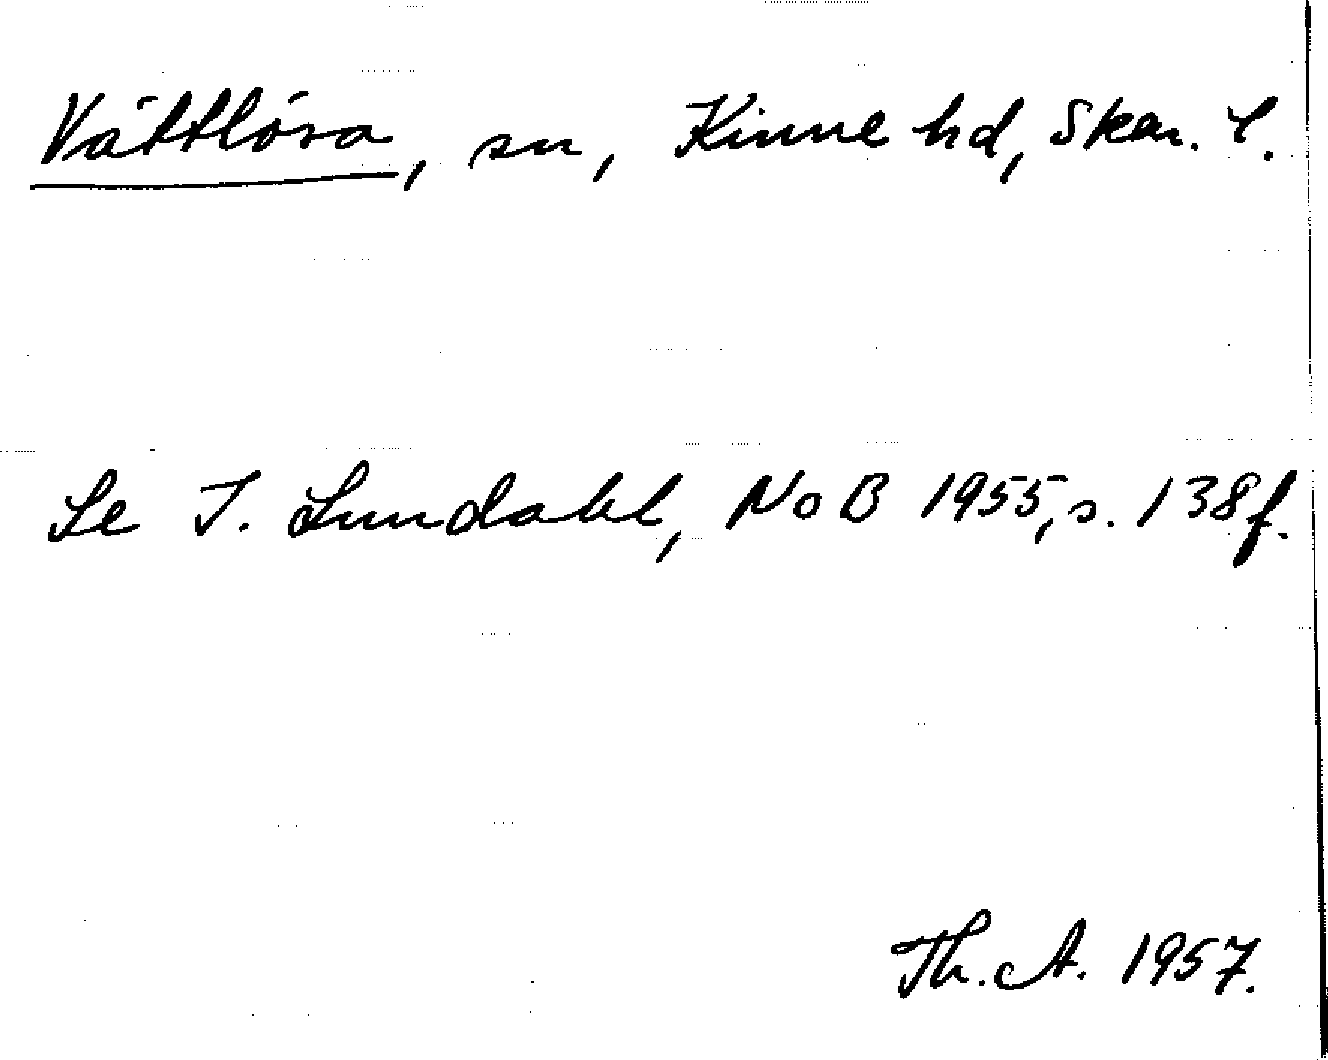 Vättlösa, sn, Kinne hd, Skar. l.
Se I. Lundahl, NoB 1955, s. 138 f.
Th. A. 1957.